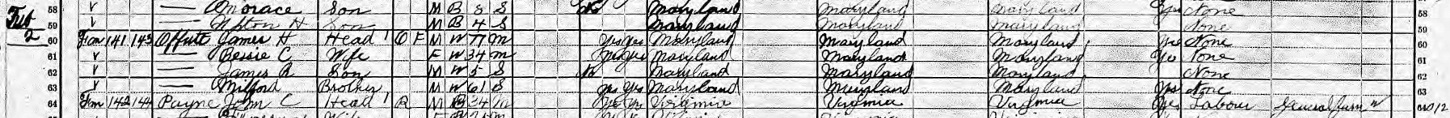 58 v — Horace Son M B 8 S No Maryland Maryland Maryland Yes None 58
59 v — H Son M B 4 S Maryland Maryland Maryland None 59
Feb 2
60 Fm 141 143 Offutt James H Head 1 O F M W 77 M Yes Yes Maryland Maryland Maryland Yes None 60
61 v — Bessie C Wife F W 34 M Yes Yes Maryland Maryland Maryland Yes None 61
62 v — James R Son M W 5 S No Maryland Maryland Maryland None 62
63 v — Milford Brother M W 61 S Yes Yes Maryland Maryland Maryland Yes None 63
64 Fm 142 144 Payne John C Head 1 R M B 34 M Yes Yes Virginia Virginia Virginia Yes Labour General farm W 64